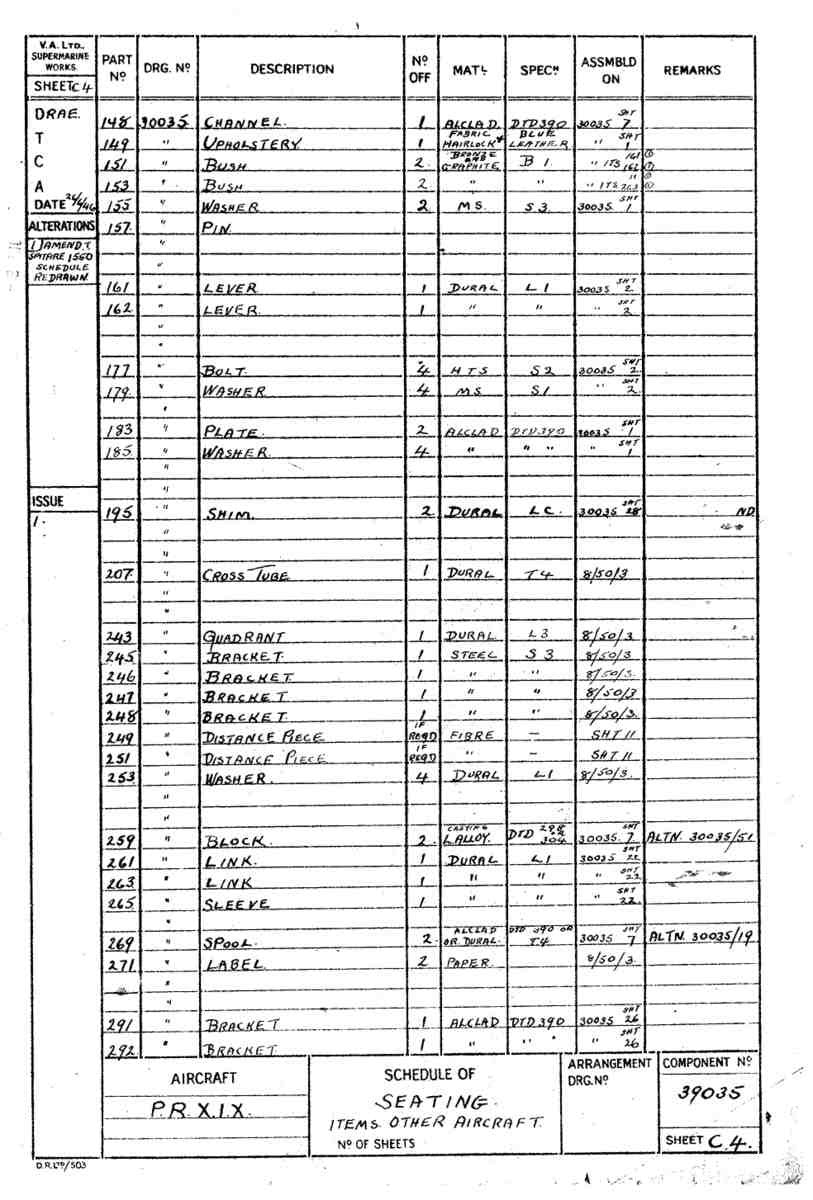 V.A. LTD., SUPERMARINE WORKS.
SHEET C4
PART Nº DRG. Nº DESCRIPTION Nº OFF MATL SPECN ASSMBLD ON REMARKS
DRAE.
T
C
A
DATE 26/6/46
ALTERATIONS
1] AMEND.T.
SPITFIRE 1560
SCHEDULE
REDRAWN.
ISSUE
1.
148 30035 CHANNEL. 1 ALCLAD. DTD390 30035 SHT 7
149 " UPHOLSTERY 1 FABRIC HAIRLOCK & BLUE LEATHER " SHT 1
151 " BUSH 2 BRONZE AND GRAPHITE B 1. " ITS 161 ① 162 ①
153 " BUSH 2 " " " ITS 263 ①
155 " WASHER 2 M S. S 3. 30035 SHT 1
157 " PIN.
"
"
161 " LEVER 1 DURAL L 1 30035 SHT 2.
162 " LEVER. 1 " " " SHT 2
"
"
177 " BOLT. 4 H T S S 2 30035 SHT 2.
179 " WASHER 4 M S S 1 " SHT 2.
"
183 " PLATE. 2 ALCLAD DTD390 30035 SHT 1
185 " WASHER. 4 " " " " SHT 1
"
"
195 " SHIM. 2 DURAL L C. 30035 SHT 28 ND
"
"
207 " CROSS TUBE 1 DURAL T 4 8/50/3
"
"
243 " QUADRANT 1 DURAL L 3 8/50/3.
245 " BRACKET. 1 STEEL S 3 8/50/3
246 " BRACKET 1 " " 8/50/3.
247 " BRACKET 1 " " 8/50/3
248 " BRACKET. 1 " " 8/50/3.
249 " DISTANCE PIECE IF REQD FIBRE – SHT 11
251 " DISTANCE PIECE IF REQD " – SHT 11
253 " WASHER. 4 DURAL L 1 8/50/3.
"
"
259 " BLOCK. 2. CASTING L. ALLOY. DTD 298 304 30035. SHT 7 ALTN. 30035/51
261 " LINK. 1 DURAL L 1 30035 SHT 22
263 " LINK 1 " " " SHT 22.
265 " SLEEVE 1 " " " SHT 22.
"
269 " SPOOL. 2. ALCLAD OR DURAL. DTD 390 OR T4 30035 SHT 7 ALTN. 30035/19
271 " LABEL. 2 PAPER. 8/50/3
"
"
291 " BRACKET 1 ALCLAD DTD390 30035 SHT 26
292 " BRACKET. 1 " " " " SHT 26
AIRCRAFT
P.R. X.I.X.
SCHEDULE OF
SEATING.
ITEMS OTHER AIRCRAFT.
Nº OF SHEETS
ARRANGEMENT DRG. Nº
COMPONENT Nº
39035
SHEET C.4.
D.R.LTD/503